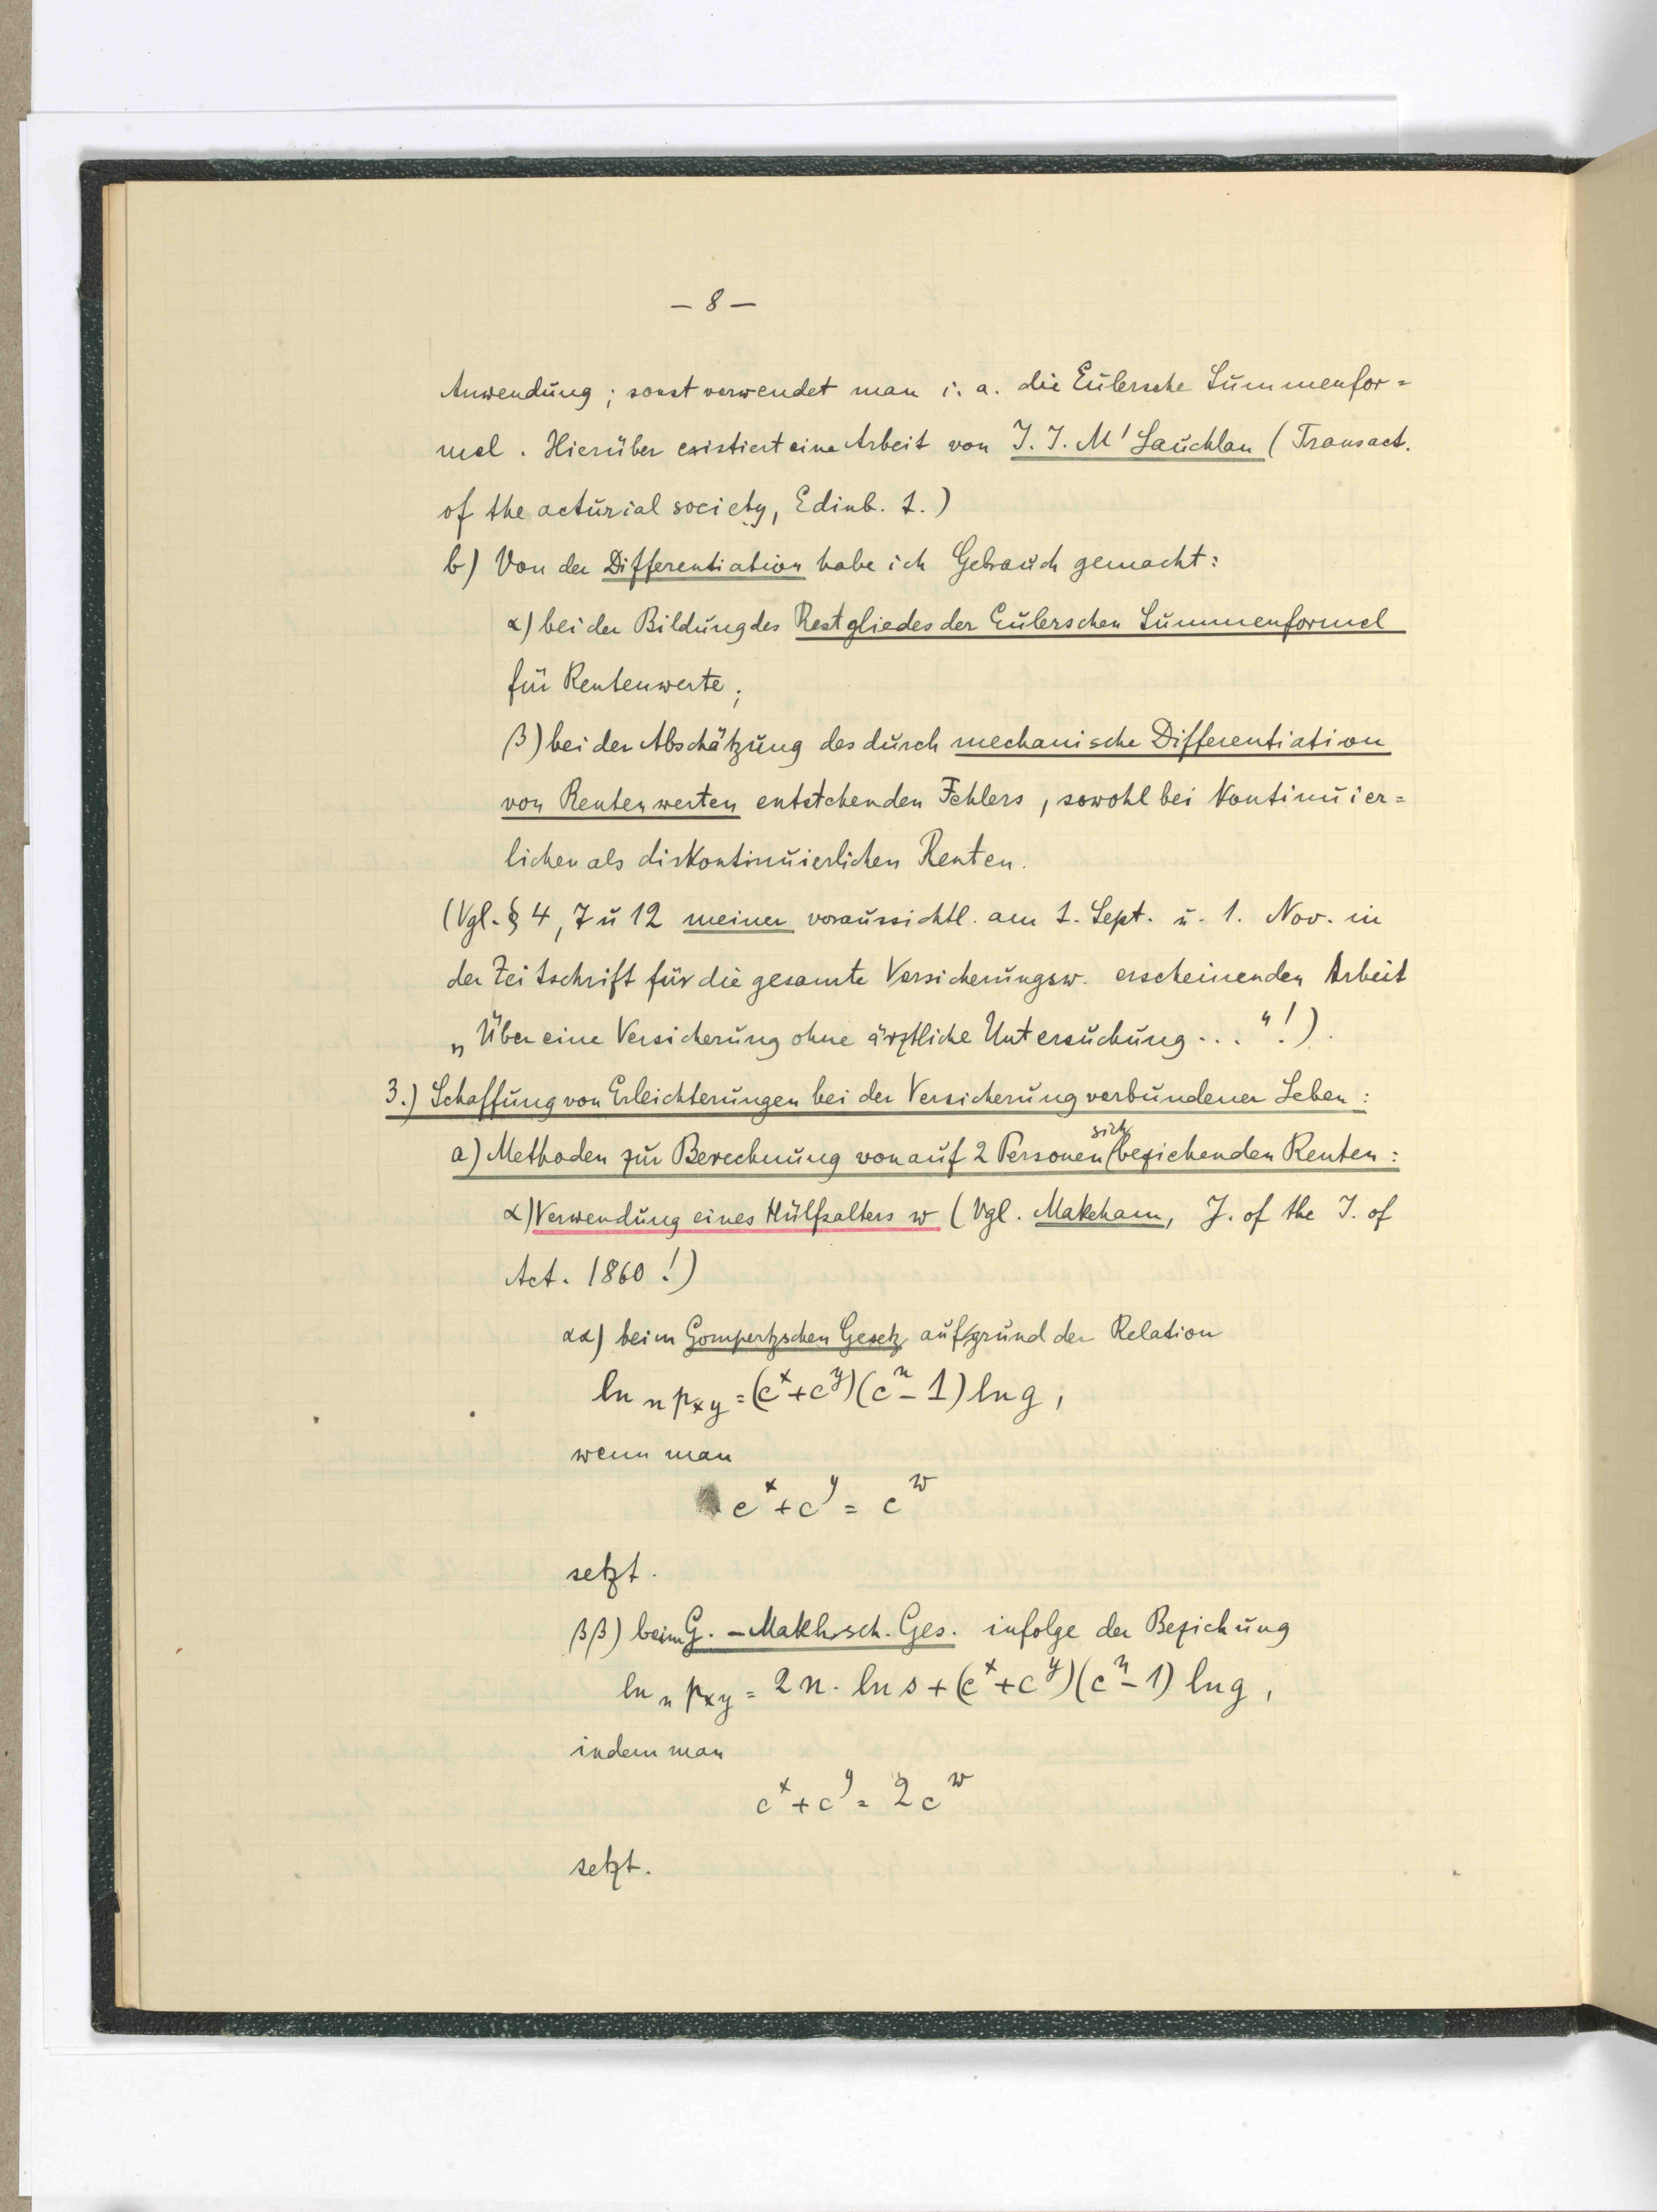 – 8 –
Anwendung; sonst verwendet man i. a. die Eulersche Summenfor=
mel. Hierüber existiert eine Arbeit von J. J. M'Lauchlan (Transact.
of the acturial society, Edinb. 1.)
b) Von der Differentiation habe ich Gebrauch gemacht:
α) bei der Bildung des Restgliedes der Eulerschen Summenformel
für Rentenwerte;
β) bei der Abschätzung des durch mechanische Differentiation
von Rentenwerten entstehenden Fehlers, sowohl bei kontinuier=
lichen als diskontinuierlichen Renten.
(Vgl. § 4, 7 u 12 meiner voraussichtl. am 1. Sept. u. 1. Nov. in
der Zeitschrift für die gesamte Versicherungsw. erscheinenden Arbeit
„Über eine Versicherung ohne ärztliche Untersuchung..."!).
3.) Schaffung von Erleichterungen bei der Versicherung verbundener Leben:
a) Methoden zur Berechnung von auf 2 Personen sich beziehenden Renten:
α) Verwendung eines Hülfsalters w (Vgl. Makeham, J. of the I. of
Act. 1860!)
αα) beim Gompertzschen Gesetz auf grund der Relation
ln ₙpₓy = (cˣ + c^y)(cⁿ − 1) ln g,
wenn man
cˣ + c^y = c^w
setzt.
ββ) beim G. – Makh.sch. Ges. infolge der Beziehung
ln ₙpₓy = 2n · ln s + (cˣ + c^y)(cⁿ − 1) ln g,
indem man
cˣ + c^y = 2c^w
setzt.